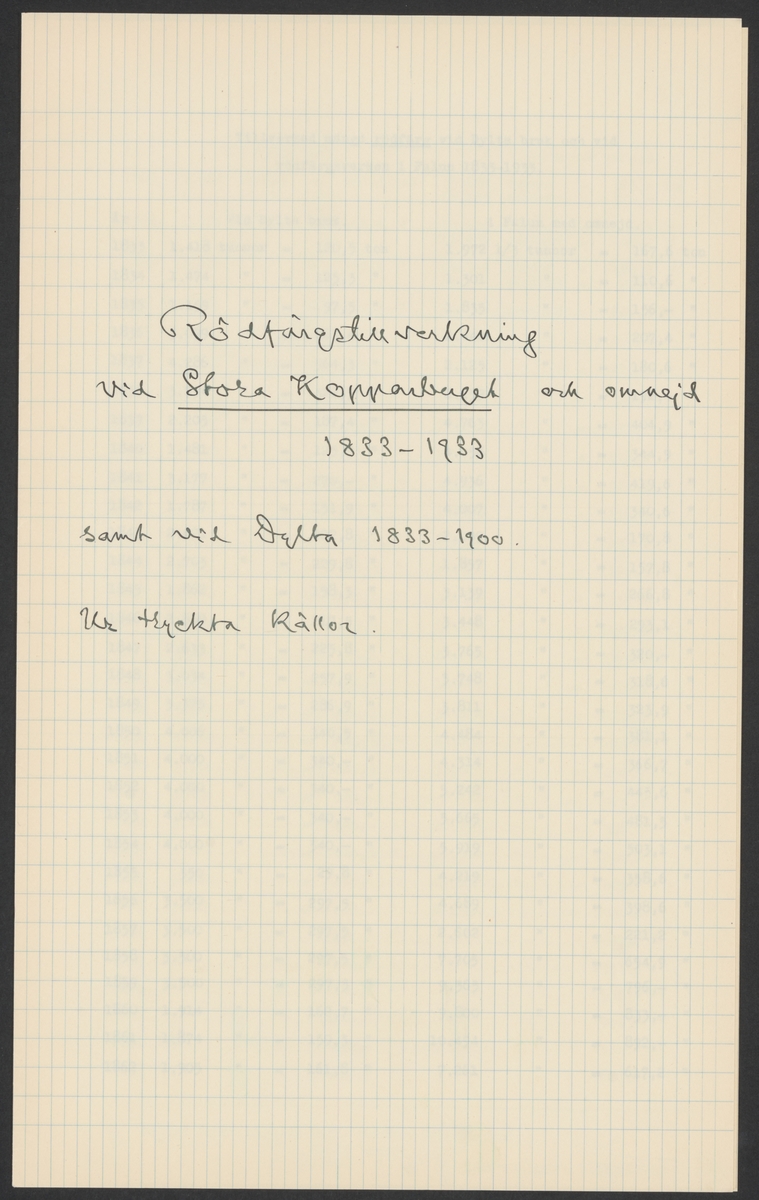 Rödfärgstillverkning
vid Stora Kopparberget och omnejd
1833-1933
samt vid Dylta 1833-1900.
Ur tryckta källor.